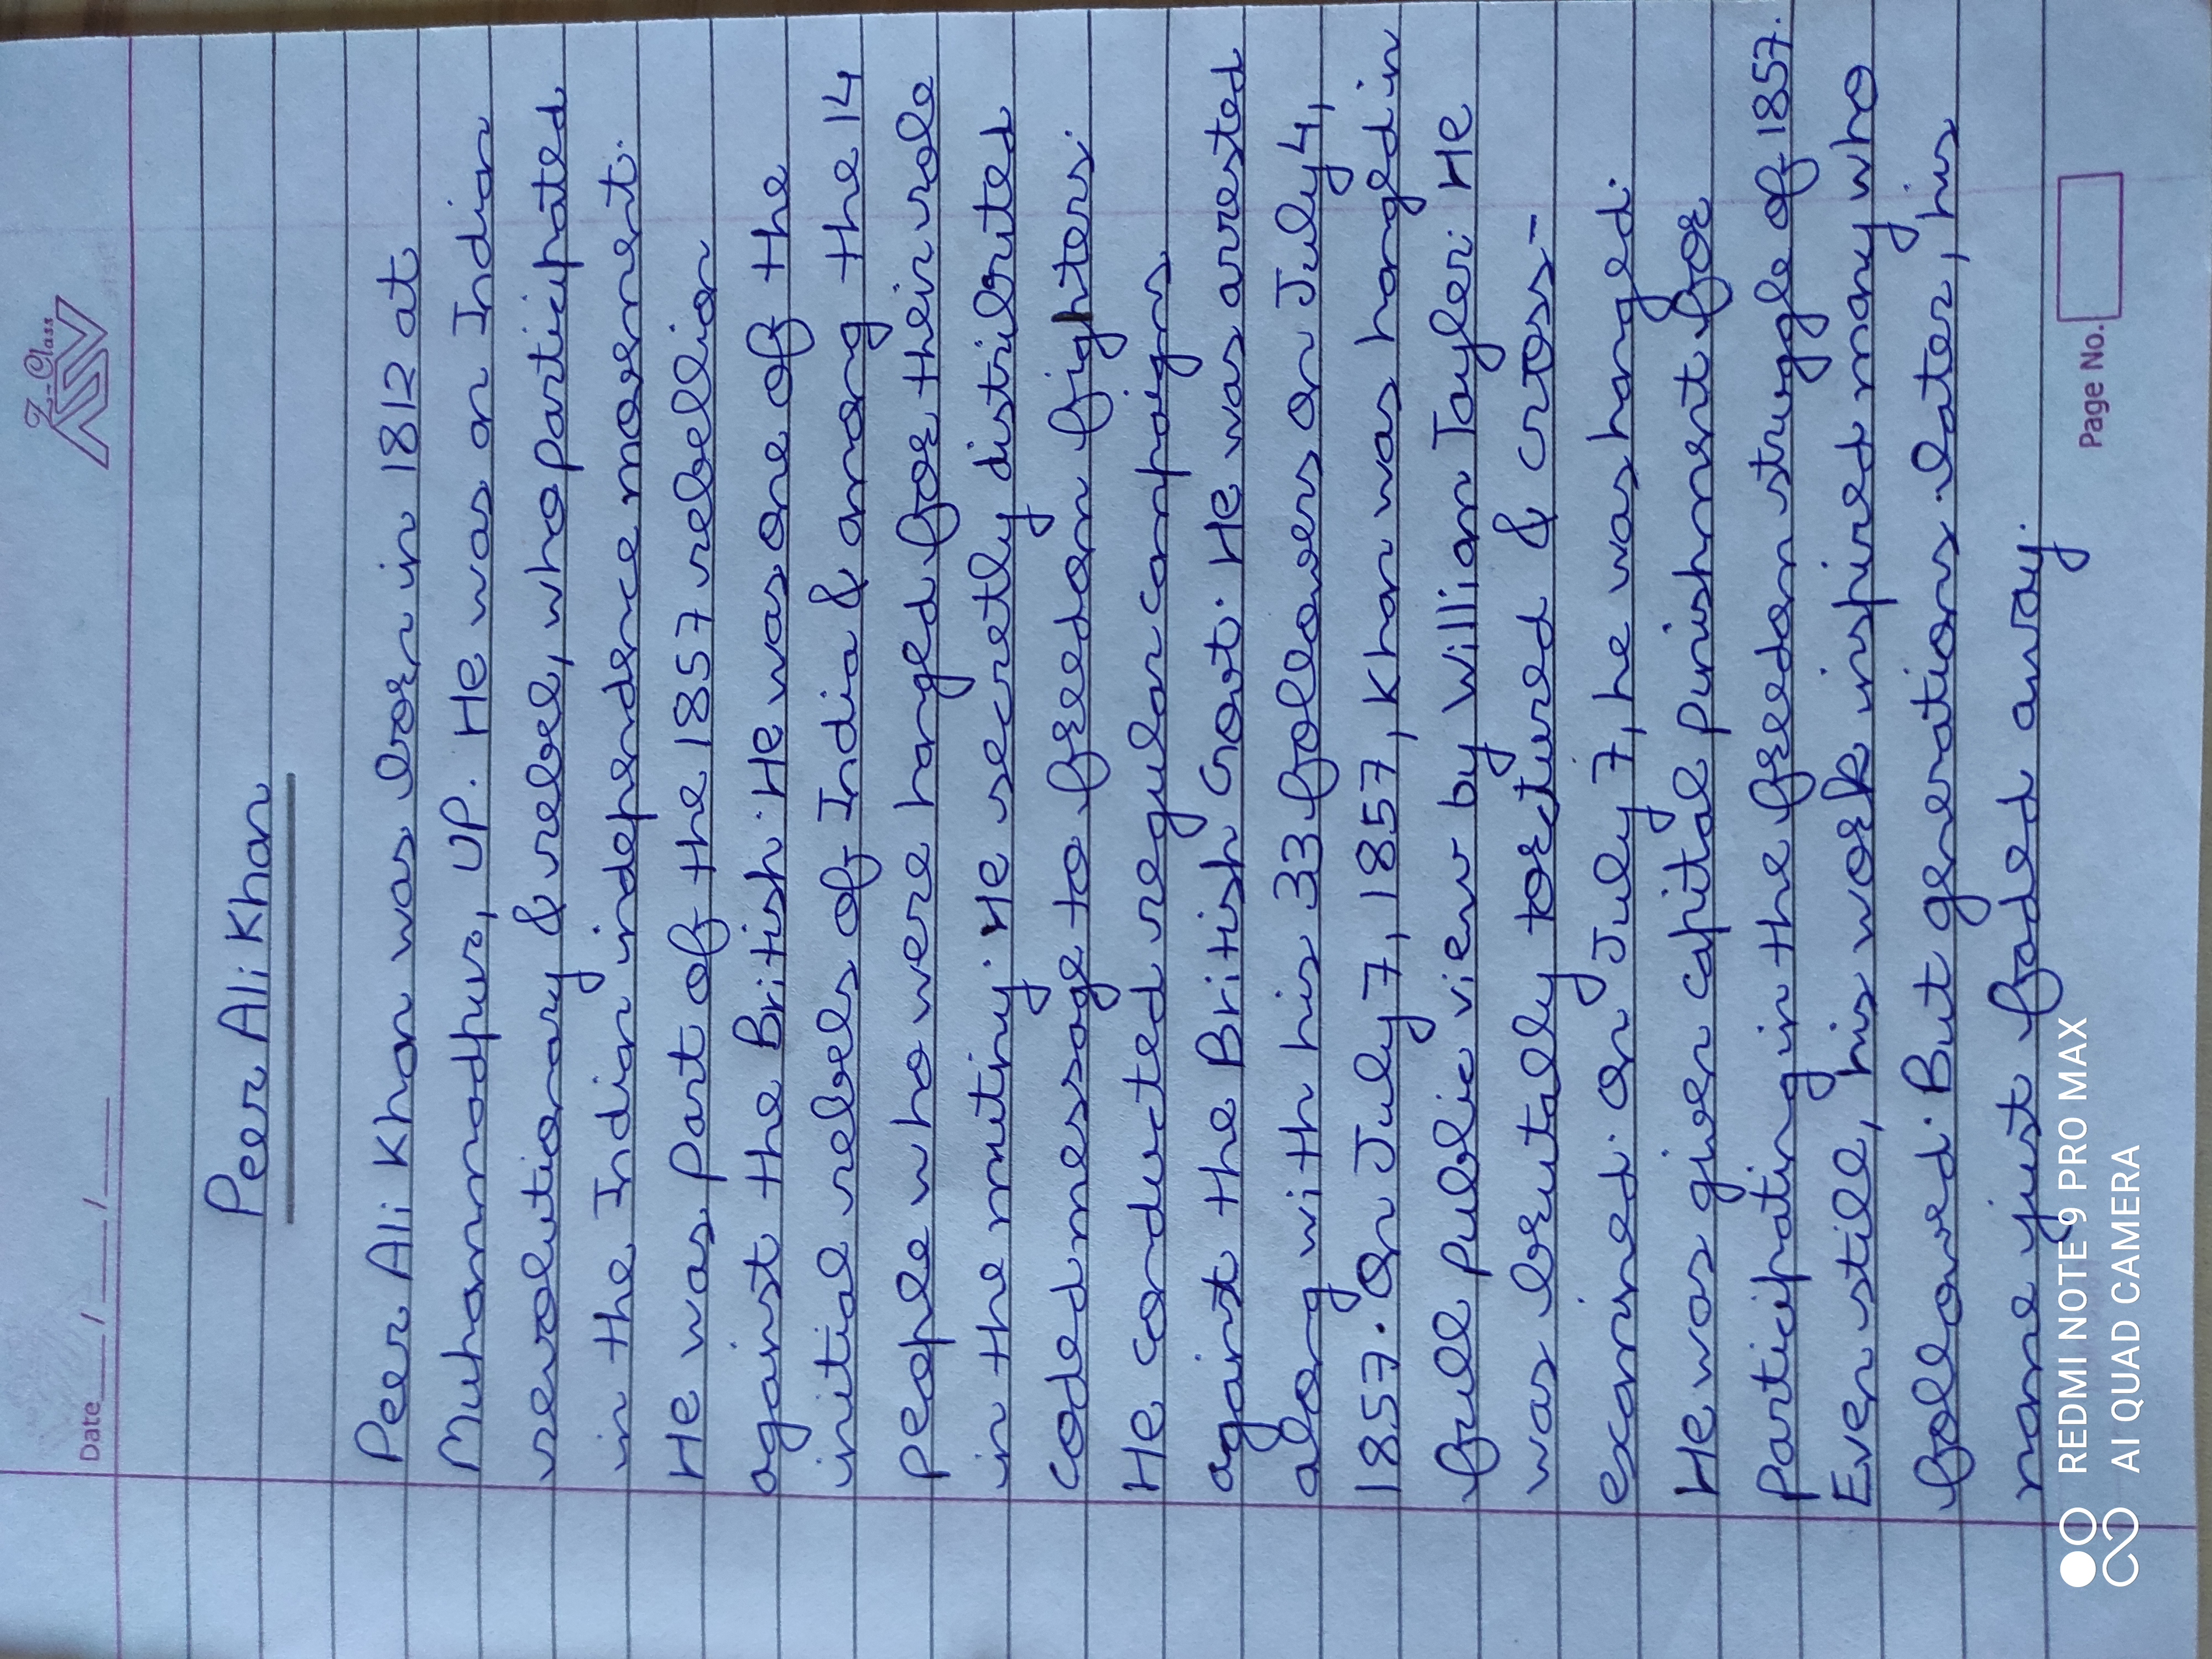 Z-Class
Date___/___/___
Peer Ali Khan
Peer Ali Khan was born in 1812 at
Muhammadpur, UP. He was an Indian
revolutionary & rebel, who participated
in the Indian independence movement.
He was part of the 1857 rebellion
against the British. He was one of the
initial rebels of India & among the 14
people who were hanged for their role
in the mutiny. He secretly distributed
coded message to freedom fighters.
He conducted regular campaigns
against the British Govt. He was arrested
along with his 33 followers on July 4,
1857. On July 7, 1857, Khan was hanged in
full public view by William Tayler. He
was brutally tortured & cross-
examined. On July 7, he was hanged.
He was given capital punishment for
participating in the freedom struggle of 1857.
Even still, his work inspired many who
followed. But generations later, his
name just faded away.
Page No.
REDMI NOTE 9 PRO MAX
AI QUAD CAMERA